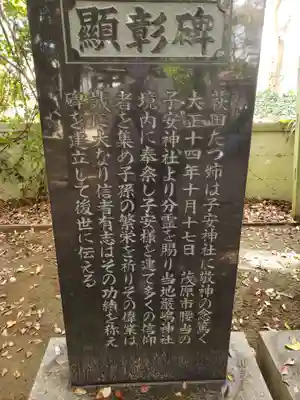 顯彰碑
荻田たつ姉は子安神社に敬神の念篤く
大正十四年十月十七日 茂原市腰当の
子安神社より分霊を賜り当地厳嶋神社
境内に奉祭し子安様を建て多くの信仰
者を集め子孫の繁栄を祈りその偉業は
誠に大なり信者有志はその功績を称え
碑を建立して後世に伝える